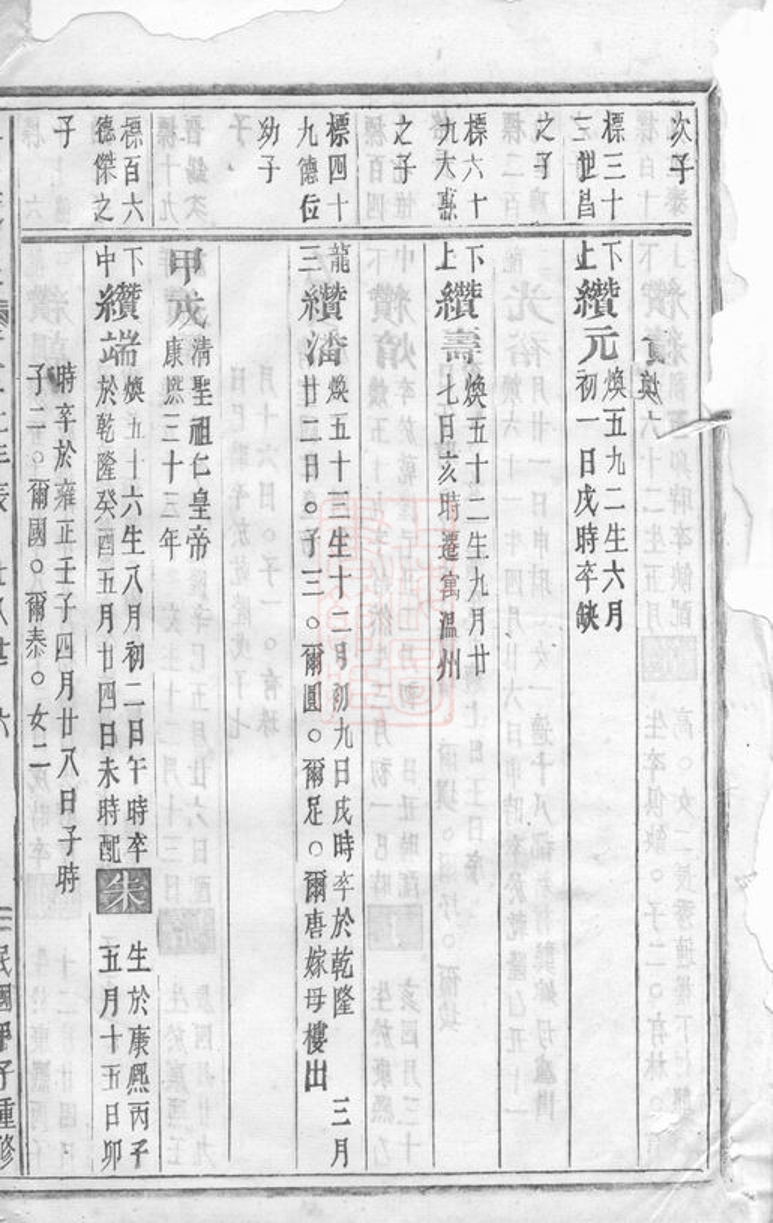 次子
標三十
三世昌
之子
標六十
九大歌
之子
標四十
九德位
幼子
標百六
德傑之
子
下
上
纘元
煥五九二生六月
初一日戌時卒缺
下
上
纘壽
煥五十二生九月廿
七日亥時遷寓溫州
龍
三
纘潘
煥五十三生十二月初九日戌時卒於乾隆 三月
廿二日○子三○爾圓○爾足○爾唐嫁母樓出
甲戌
清聖祖仁皇帝
康熙三十三年
下
中
纘端
煥五十六生八月初二日午時卒
於乾隆癸酉五月廿四日未時配
朱
生於康熙丙子
五月十五日卯
時卒於雍正壬子四月廿八日子時
子二○爾國○爾泰○女二